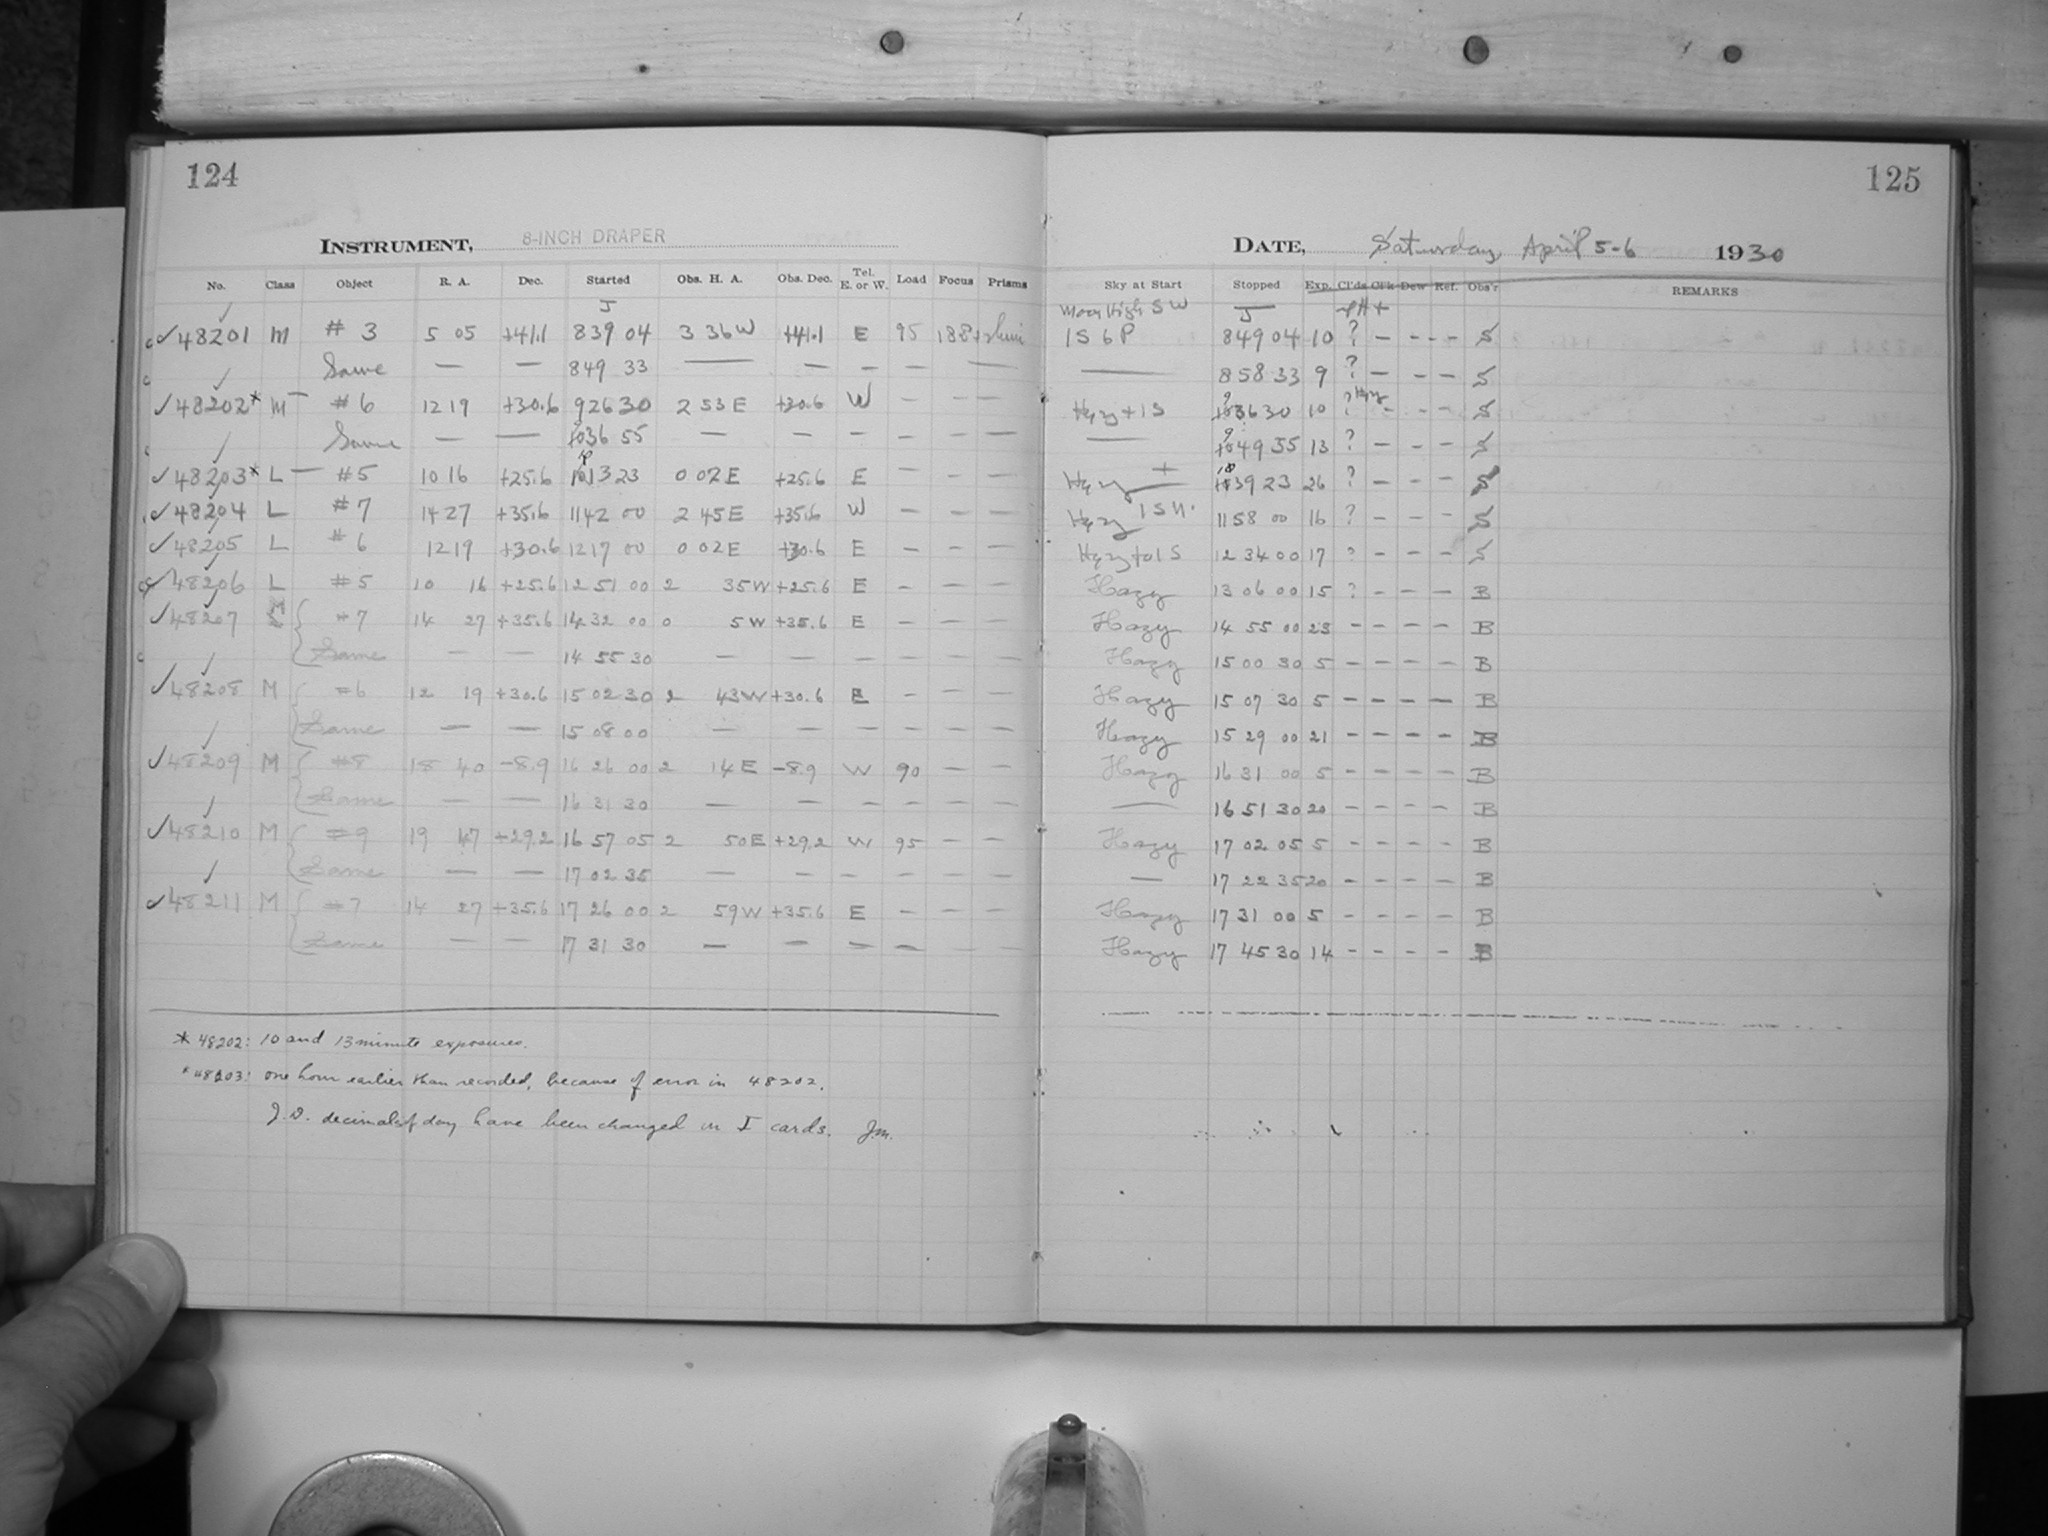 124
INSTRUMENT, 8-INCH DRAPER
No. Class Object R. A. Dec. Started Obs. H. A. Obs. Dec. Tel. E. or W. Load Focus Prisms
J
48201 M # 3 5 05 +41.1 839 04 3 36 W +41.1 E 95
Same — — 849 33 — — — —
48202* M # 6 12 19 +30.6 926 30 2 53 E +30.6 W — — —
Same — — 36 55 — — — — — —
48203* L — #5 10 16 +25.6 13 23 0 02 E +25.6 E — — —
48204 L #7 14 27 +35.6 1142 00 2 45 E +35.6 W — — —
48205 L #6 12 19 +30.6 1217 00 0 02 E +30.6 E — — —
48206 L #5 10 16 +25.6 12 51 00 2 35 W +25.6 E — — —
48207 M #7 14 27 +35.6 14 32 00 0 5 W +35.6 E — — —
Same — — 14 55 30 — — — — — —
48208 M #6 12 19 +30.6 15 02 30 2 43 W +30.6 E — — —
Same — — 15 08 00 — — — — — —
48209 M #8 18 40 -8.9 16 26 00 2 14 E -8.9 W 90 — —
Same — — 16 31 30 — — — — — —
48210 M #9 19 47 +29.2 16 57 05 2 50 E +29.2 W 95 — —
Same — — 17 02 35 — — — — — —
48211 M #7 14 27 +35.6 17 26 00 2 59 W +35.6 E — — —
Same — — 17 31 30 — — — — — —
* 48202: 10 and 13 minute exposures.
* 48203: one hour earlier than recorded, because of error in 48202.
J.D. decimals of day have been changed in I cards. J.M.
125
DATE, Saturday April 5-6 1930
Sky at Start Stopped Exp. Cl'ds Cl'k Dew Ref. Obs'r REMARKS
Moon High SW J
1S 6P 849 04 10 ? — — — S
— 858 33 9 ? — — — S
Hazy + 1S 36 30 10 ? Hazy — — — S
— 49 55 13 ? — — — S
Hazy 39 23 26 ? — — — S
Hazy 1 S 11 58 00 16 ? — — — S
Hazy to 1 S 12 34 00 17 ? — — — S
Hazy 13 06 00 15 ? — — — B
Hazy 14 55 00 23 — — — — B
Hazy 15 00 30 5 — — — — B
Hazy 15 07 30 5 — — — — B
Hazy 15 29 00 21 — — — — B
Hazy 16 31 00 5 — — — — B
— 16 51 30 20 — — — — B
Hazy 17 02 05 5 — — — — B
— 17 22 35 20 — — — — B
Hazy 17 31 00 5 — — — — B
Hazy 17 45 30 14 — — — — B